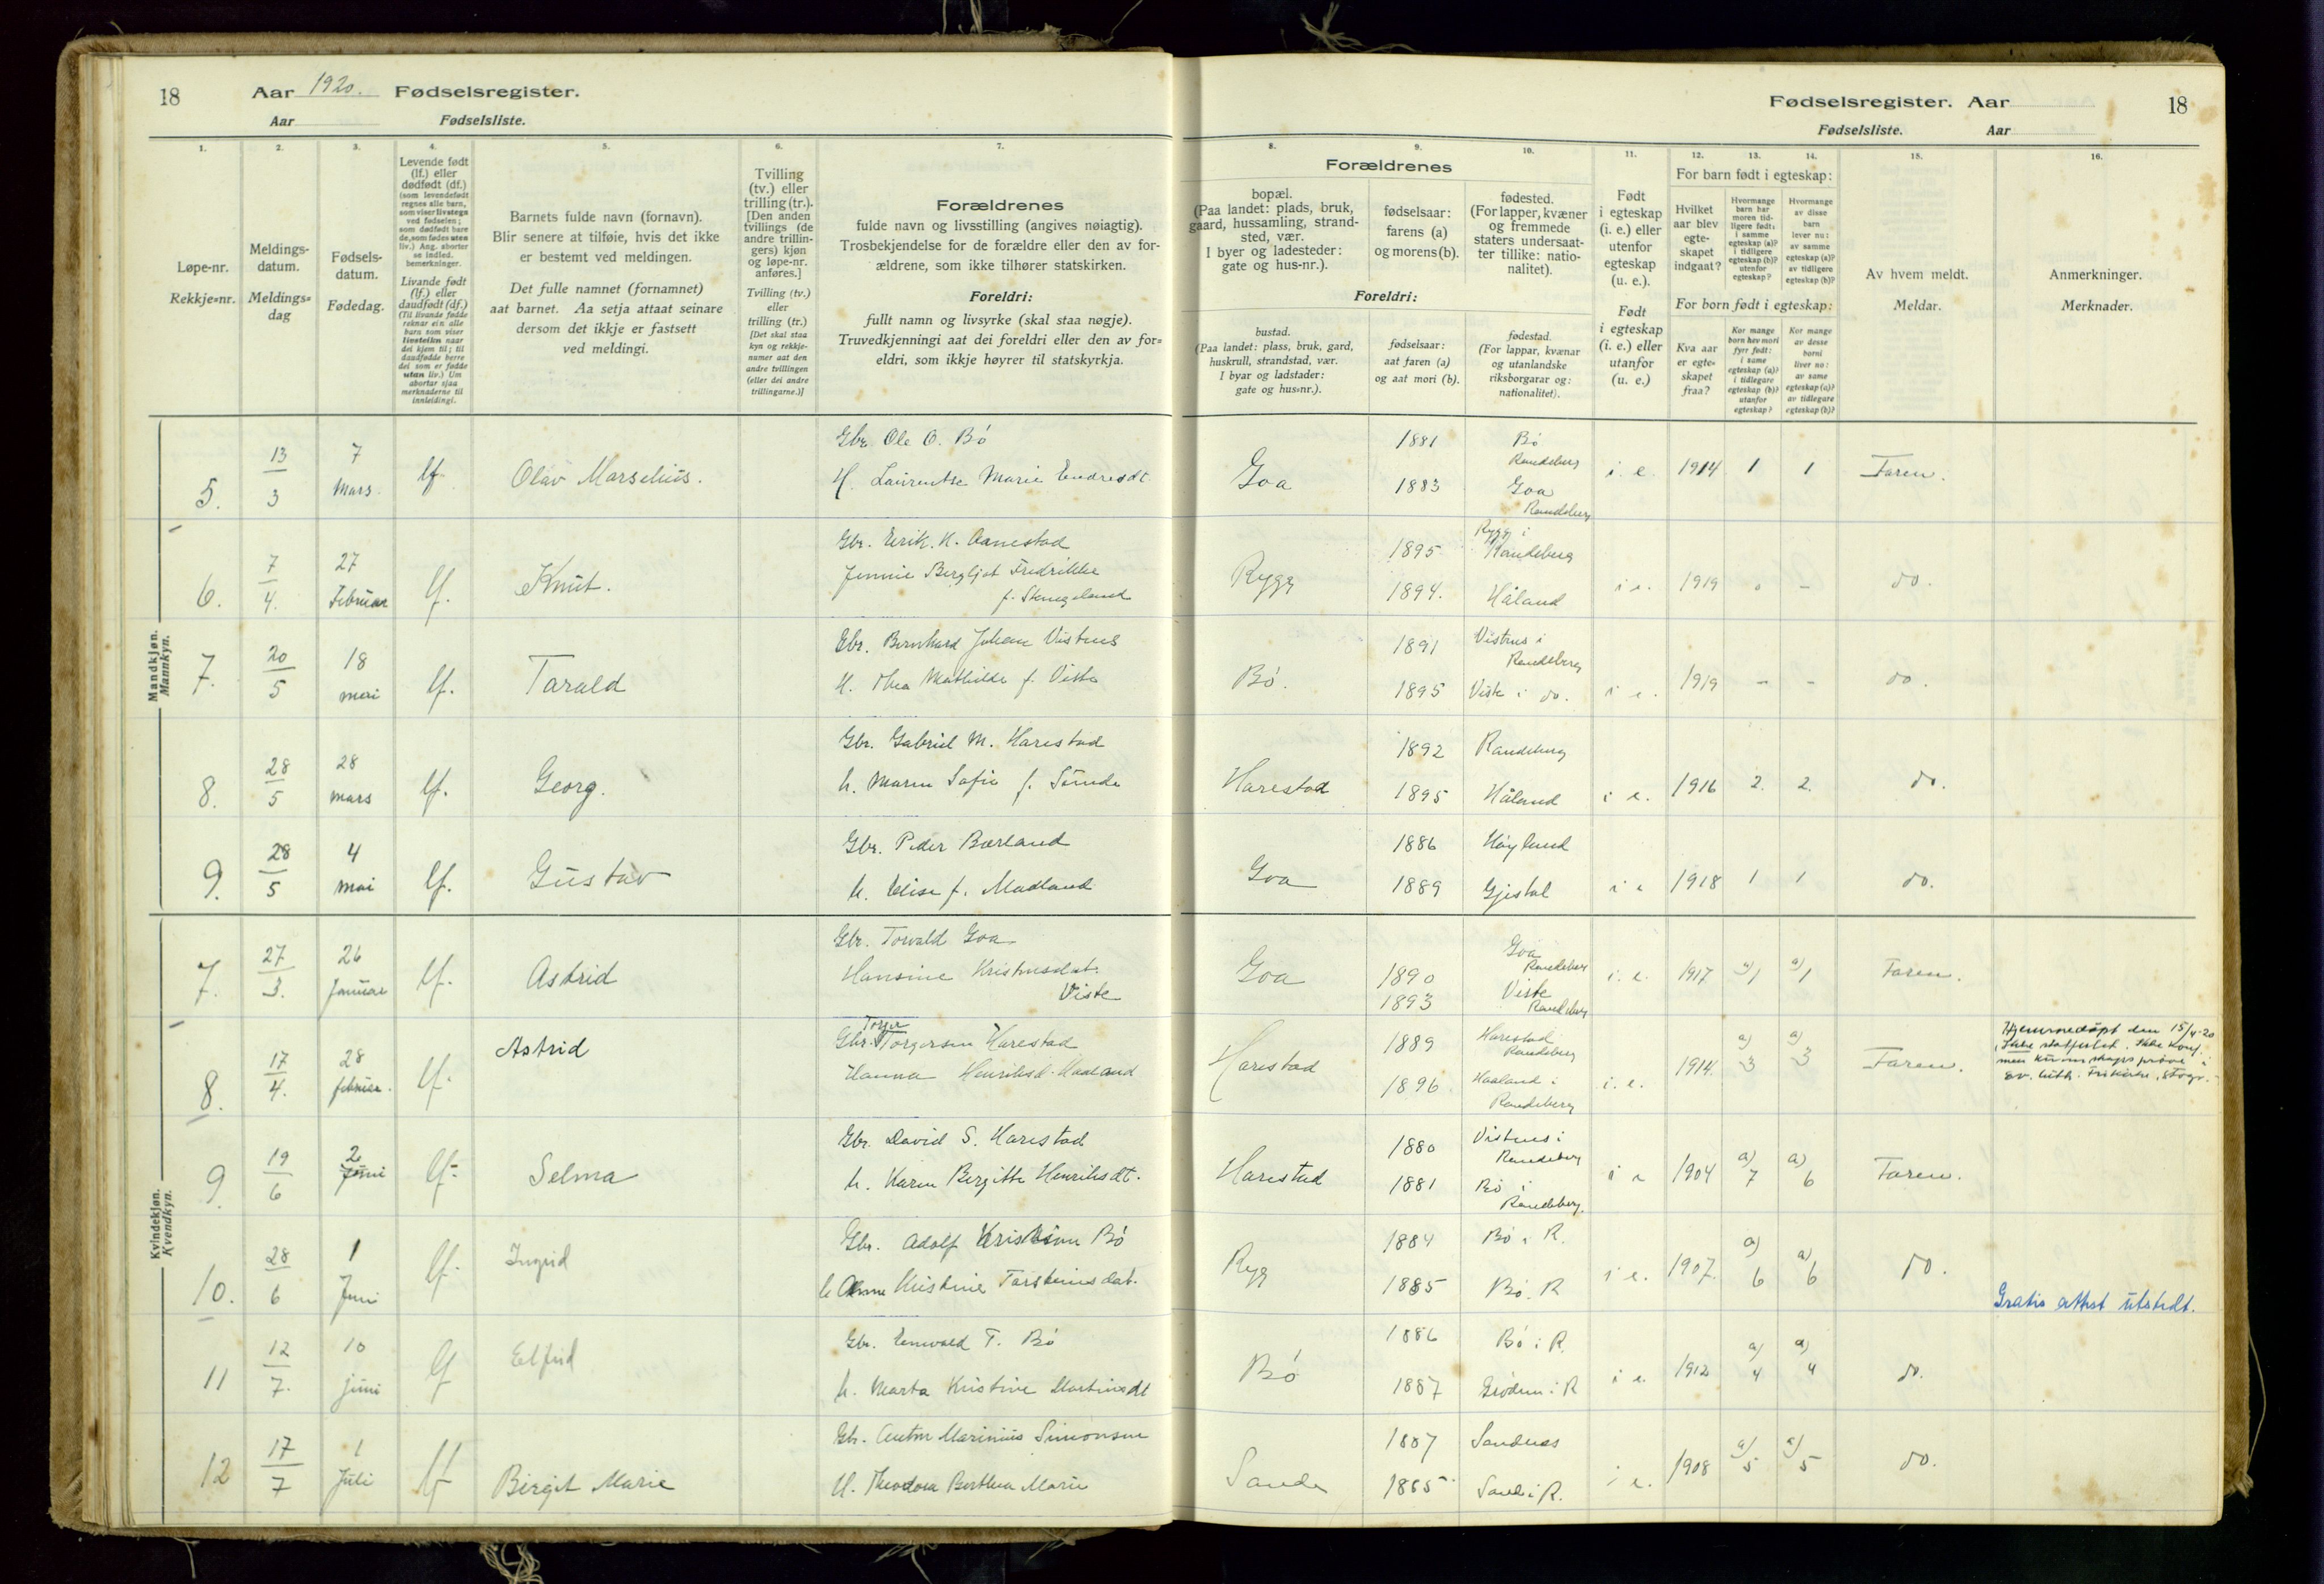 18 Aar 1920. Fødselsregister.
Aar Fødselsliste.
1. 2. 3. 4. 5. 6. 7.
Løpe-nr.
Rekkje=nr.
Meldings-
datum.
Meldings=
dag
Fødsels-
datum.
Fødedag.
Levende født
(lf.) eller
dødfødt (df.)
(som levendefødt
regnes alle barn,
som viser livstegn
ved fødselen;
som dødfødt bare
de, som fødes uten
liv.) Ang. aborter
se indled.
bemerkninger.
Livande født
(lf.) eller
daudfødt (df.)
(Til livande fødde
reknar ein alle
born som viser
livsteikn naar
dei kjem til; til
daudfødde berre
dei som er fødde
utan liv.) Um
abortar sjaa
merknaderne til
innleidingi.
Barnets fulde navn (fornavn).
Blir senere at tilføie, hvis det ikke
er bestemt ved meldingen.
Det fulle namnet (fornamnet)
aat barnet. Aa setja attaat seinare
dersom det ikkje er fastsett
ved meldingi.
Tvilling
(tv.) eller
trilling (tr.).
[Den anden
tvillings (de
andre trillin-
gers) kjøn
og løpe-nr.
anføres.]
Tvilling (tv.)
eller
trilling (tr.)
[Det skal staa
kyn og rekkje-
numer aat den
andre tvillingen
(eller dei andre
trillingarne.)]
Forældrenes
fulde navn og livsstilling (angives nøiagtig).
Trosbekjendelse for de forældre eller den av for-
ældrene, som ikke tilhører statskirken.
Foreldri:
fullt namn og livsyrke (skal staa nøgje).
Truvedkjenningi aat dei foreldri eller den av for=
eldri, som ikkje høyrer til statskyrkja.
Mandkjøn.
Mannkyn.
5. 13/3 7 Mars. lf. Olav Marselius.
Gbr. Ole O. Bö
H. Laurentse Marie Endresdt.
6. 7/4. 27 Februar lf. Knut.
Gbr. Eirik. K. Aanestad
Jennie Bergljot Fredrikke
f. Stangeland
7. 20/5 18 mai lf. Tarald
Gbr. Bernhard Johan Vistnes
H. Thea Mathilde f. Viste
8. 28/5 28 mars lf. Georg.
Gbr. Gabriel M. Harestad
h. Maren Sofie f. Sunde
9. 28/5 4 mai lf. Gustav
Gbr. Peder Bærland
h. Elise f. Madland
Kvindekjøn.
Kvendkyn.
7. 27/3. 26 Januar lf. Astrid
Gbr. Torvald Goa
Hansine Kristensdat.
Viste
8. 17/4. 28 februar. lf. Astrid
Torger
Gbr. Torgersen Harestad
Hanna Henriksd. Haaland
9 19/6 2 Juni lf. Selma
Gbr. David S. Harestad
h. Karen Bergitte Henriksdt.
10. 28/6 1 Juni lf. Ingrid
Gbr. Adolf Kristian Bö
h Anne Kristine Torsteinsdat.
11 12/7. 10 juni lf Elfrid
Gbr. Enevald T. Bö
h. Marta Kristine Martinsdt
12 17/7 1 Juli lf Birgit Marie
Gbr. Anton Marinius Simonsen
H. Theodora Berthea Marie
Fødselsregister. Aar 18
Fødselsliste. Aar
8. 9. 10. 11. 12. 13. 14. 15. 16.
Forældrenes
bopæl.
(Paa landet: plads, bruk,
gaard, hussamling, strand-
sted, vær.
I byer og ladesteder:
gate og hus-nr.).
fødselsaar:
farens (a)
og morens (b).
fødested.
(For lapper, kvæner
og fremmede
staters undersaat-
ter tillike: natio-
nalitet).
Foreldri:
bustad.
(Paa landet: plass, bruk, gard,
huskrull, strandstad, vær.
I byar og ladstader:
gate og hus=nr.).
fødselsaar:
aat faren (a)
og aat mori (b).
fødestad.
(For lappar, kvænar
og utanlandske
riksborgarar og:
nationalitet).
Født
i egteskap
(i. e.) eller
utenfor
egteskap
(u. e.).
Født
i egteskap
(i. e.) eller
utanfor
(u. e.)
For barn født i egteskap:
Hvilket
aar blev
egte-
skapet
indgaat?
Hvormange
barn har
moren tid-
ligere født:
i samme
egteskap (a)?
i tidligere
egteskap (b)?
utenfor
egteskap?
Hvormange
av disse
barn
lever nu:
av samme
egteskap (a)?
av tidligere
egteskap (b)?
For born født i egteskap:
Kva aar
er egte-
skapet
fraa?
Kor mange
born hev mori
fyrr født:
i same
egteskap (a)?
i tidlegare
egteskap (b)?
utanfor
egteskap?
Kor mange
av desse
borni
liver no:
av same
egteskap (a)?
av tidlegare
egteskap (b)?
Av hvem meldt.
Meldar.
Anmerkninger.
Merknader.
Goa 1881 Bö Randeberg
1883 Goa Randeberg i. e. 1914 1 1 Faren.
Rygg 1895 Rygg i Randeberg
1894. Håland i e. 1919 0 - do.
Bö. 1891 Vistnes i Randeberg
1895 Viste i do. i e. 1919 - - do.
Harestad 1892 Randeberg
1895 Håland i e. 1916 2. 2. do.
Goa 1886 Höyland
1889 Gjestal i e 1918 1 1 do.
Goa 1890 Goa Randeberg
1893 Viste Randeberg i. e. 1917 a) 1 a) 1 Faren.
Harestad 1889 Harestad Randeberg
1896 Haaland i Randeberg i. e. 1914. a) 3 a) 3 Faren.
Hjemmedöpt den 15/4-20
Ikke statskirk. Ikke konf.
men kunnskapspröve i
ev. luth. Frikirke, Stavgr.
Harestad 1880 Vistnes i Randeberg
1881 Bö i Randeberg. i e 1904 a) 7 a) 6 Faren.
Ryg 1884 Bö i R.
1885 Bö. R i e. 1907. a) 6 a) 6 do.
Gratis attest utstedt.
Bö 1886 Bö i R.
1887 Grödem i R i e. 1912 a) 4 a) 4 do.
Sande 1887 Sandnes
1885 Sande i R. i e. 1908 a) 5 a) 5 do.